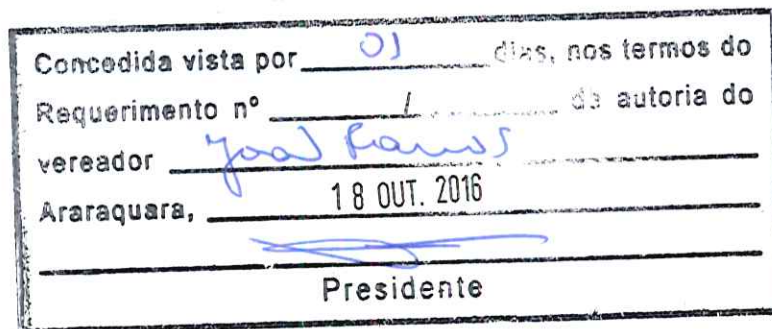 Concedida vista por 01 dias, nos termos do
Requerimento nº / de autoria do
vereador
Araraquara, 18 OUT. 2016
Presidente